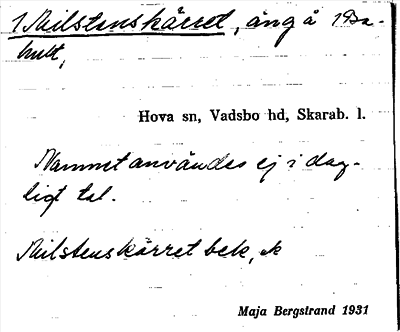 1 Milstenskärret, äng å 1 Ba-
hult,
Hova sn, Vadsbo hd, Skarab. l.
Namnet användes ej i dag-
ligt tal.
Milstenskärret bek,
Maja Bergstrand 1931